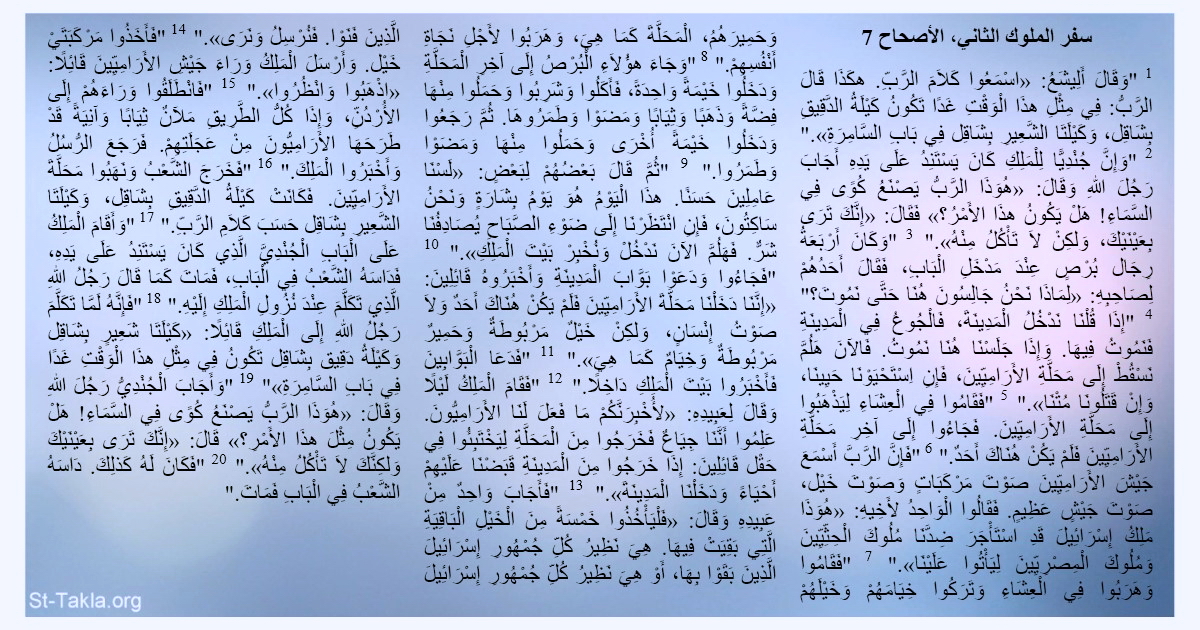 سفر الملوك الثاني، الأصحاح 7
1 "وَقَالَ أَلِيشَعُ: «اسْمَعُوا كَلاَمَ الرَّبِّ. هكَذَا قَالَ
الرَّبُّ: فِي مِثْلِ هذَا الْوَقْتِ غَدًا تَكُونُ كَيْلَةُ الدَّقِيقِ
بِشَاقِل، وَكَيْلَتَا الشَّعِيرِ بِشَاقِل فِي بَابِ السَّامِرَةِ»."
2 "وَإِنَّ جُنْدِيًّا لِلْمَلِكِ كَانَ يَسْتَنِدُ عَلَى يَدِهِ أَجَابَ
رَجُلَ اللهِ وَقَالَ: «هُوَذَا الرَّبُّ يَصْنَعُ كُوًى فِي
السَّمَاءِ! هَلْ يَكُونُ هذَا الأَمْرُ؟» فَقَالَ: «إِنَّكَ تَرَى
بِعَيْنَيْكَ، وَلكِنْ لاَ تَأْكُلُ مِنْهُ»." 3 "وَكَانَ أَرْبَعَةُ
رِجَال بُرْصٍ عِنْدَ مَدْخَلِ الْبَابِ، فَقَالَ أَحَدُهُمْ
لِصَاحِبِهِ: «لِمَاذَا نَحْنُ جَالِسُونَ هُنَا حَتَّى نَمُوتَ؟"
4 "إِذَا قُلْنَا نَدْخُلُ الْمَدِينَةَ، فَالْجُوعُ فِي الْمَدِينَةِ
فَنَمُوتُ فِيهَا. وَإِذَا جَلَسْنَا هُنَا نَمُوتُ. فَالآنَ هَلُمَّ
نَسْقُطْ إِلَى مَحَلَّةِ الأَرَامِيِّينَ، فَإِنِ اسْتَحْيَوْنَا حَيِينَا،
وَإِنْ قَتَلُونَا مُتْنَا»." 5 "فَقَامُوا فِي الْعِشَاءِ لِيَذْهَبُوا
إِلَى مَحَلَّةِ الأَرَامِيِّينَ. فَجَاءُوا إِلَى آخِرِ مَحَلَّةِ
الأَرَامِيِّينَ فَلَمْ يَكُنْ هُنَاكَ أَحَدٌ." 6 "فَإِنَّ الرَّبَّ أَسْمَعَ
جَيْشَ الأَرَامِيِّينَ صَوْتَ مَرْكَبَاتٍ وَصَوْتَ خَيْل،
صَوْتَ جَيْشٍ عَظِيمٍ. فَقَالُوا الْوَاحِدُ لأَخِيهِ: «هُوَذَا
مَلِكُ إِسْرَائِيلَ قَدِ اسْتَأْجَرَ ضِدَّنَا مُلُوكَ الْحِثِّيِّينَ
وَمُلُوكَ الْمِصْرِيِّينَ لِيَأْتُوا عَلَيْنَا»." 7 "فَقَامُوا
وَهَرَبُوا فِي الْعِشَاءِ وَتَرَكُوا خِيَامَهُمْ وَخَيْلَهُمْ
وَحَمِيرَهُمُ، الْمَحَلَّةَ كَمَا هِيَ، وَهَرَبُوا لأَجْلِ نَجَاةِ
أَنْفُسِهِمْ." 8 "وَجَاءَ هؤُلاَءِ الْبُرْصُ إِلَى آخِرِ الْمَحَلَّةِ
وَدَخَلُوا خَيْمَةً وَاحِدَةً، فَأَكَلُوا وَشَرِبُوا وَحَمَلُوا مِنْهَا
فِضَّةً وَذَهَبًا وَثِيَابًا وَمَضَوْا وَطَمَرُوهَا. ثُمَّ رَجَعُوا
وَدَخَلُوا خَيْمَةً أُخْرَى وَحَمَلُوا مِنْهَا وَمَضَوْا
وَطَمَرُوا." 9 "ثُمَّ قَالَ بَعْضُهُمْ لِبَعْضٍ: «لَسْنَا
عَامِلِينَ حَسَنًا. هذَا الْيَوْمُ هُوَ يَوْمُ بِشَارَةٍ وَنَحْنُ
سَاكِتُونَ، فَإِنِ انْتَظَرْنَا إِلَى ضَوْءِ الصَّبَاحِ يُصَادِفُنَا
شَرٌّ. فَهَلُمَّ الآنَ نَدْخُلْ وَنُخْبِرْ بَيْتَ الْمَلِكِ»." 10
"فَجَاءُوا وَدَعَوْا بَوَّابَ الْمَدِينَةِ وَأَخْبَرُوهُ قَائِلِينَ:
«إِنَّنَا دَخَلْنَا مَحَلَّةَ الأَرَامِيِّينَ فَلَمْ يَكُنْ هُنَاكَ أَحَدٌ وَلاَ
صَوْتُ إِنْسَانٍ، وَلكِنْ خَيْلٌ مَرْبُوطَةٌ وَحَمِيرٌ
مَرْبُوطَةٌ وَخِيَامٌ كَمَا هِيَ»." 11 "فَدَعَا الْبَوَّابِينَ
فَأَخْبَرُوا بَيْتَ الْمَلِكِ دَاخِلًا." 12 "فَقَامَ الْمَلِكُ لَيْلًا
وَقَالَ لِعَبِيدِهِ: «لأُخْبِرَنَّكُمْ مَا فَعَلَ لَنَا الأَرَامِيُّونَ.
عَلِمُوا أَنَّنَا جِيَاعٌ فَخَرَجُوا مِنَ الْمَحَلَّةِ لِيَخْتَبِئُوا فِي
حَقْل قَائِلِينَ: إِذَا خَرَجُوا مِنَ الْمَدِينَةِ قَبَضْنَا عَلَيْهِمْ
أَحْيَاءً وَدَخَلْنَا الْمَدِينَةَ»." 13 "فَأَجَابَ وَاحِدٌ مِنْ
عَبِيدِهِ وَقَالَ: «فَلْيَأْخُذُوا خَمْسَةً مِنَ الْخَيْلِ الْبَاقِيَةِ
الَّتِي بَقِيَتْ فِيهَا. هِيَ نَظِيرُ كُلِّ جُمْهُورِ إِسْرَائِيلَ
الَّذِينَ بَقَوْا بِهَا، أَوْ هِيَ نَظِيرُ كُلِّ جُمْهُورِ إِسْرَائِيلَ
الَّذِينَ فَنَوْا. فَنُرْسِلُ وَنَرَى»." 14 "فَأَخَذُوا مَرْكَبَتَيْ
خَيْل. وَأَرْسَلَ الْمَلِكُ وَرَاءَ جَيْشِ الأَرَامِيِّينَ قَائِلًا:
«اذْهَبُوا وَانْظُرُوا»." 15 "فَانْطَلَقُوا وَرَاءَهُمْ إِلَى
الأُرْدُنِّ، وَإِذَا كُلُّ الطَّرِيقِ مَلآنٌ ثِيَابًا وَآنِيَةً قَدْ
طَرَحَهَا الأَرَامِيُّونَ مِنْ عَجَلَتِهِمْ. فَرَجَعَ الرُّسُلُ
وَأَخْبَرُوا الْمَلِكَ." 16 "فَخَرَجَ الشَّعْبُ وَنَهَبُوا مَحَلَّةَ
الأَرَامِيِّينَ. فَكَانَتْ كَيْلَةُ الدَّقِيقِ بِشَاقِل، وَكَيْلَتَا
الشَّعِيرِ بِشَاقِل حَسَبَ كَلاَمِ الرَّبِّ." 17 "وَأَقَامَ الْمَلِكُ
عَلَى الْبَابِ الْجُنْدِيَّ الَّذِي كَانَ يَسْتَنِدُ عَلَى يَدِهِ،
فَدَاسَهُ الشَّعْبُ فِي الْبَابِ، فَمَاتَ كَمَا قَالَ رَجُلُ اللهِ
الَّذِي تَكَلَّمَ عِنْدَ نُزُولِ الْمَلِكِ إِلَيْهِ." 18 "فَإِنَّهُ لَمَّا تَكَلَّمَ
رَجُلُ اللهِ إِلَى الْمَلِكِ قَائِلًا: «كَيْلَتَا شَعِيرٍ بِشَاقِل
وَكَيْلَةُ دَقِيق بِشَاقِل تَكُونُ فِي مِثْلِ هذَا الْوَقْتِ غَدًا
فِي بَابِ السَّامِرَةِ»" 19 "وَأَجَابَ الْجُنْدِيُّ رَجُلَ اللهِ
وَقَالَ: «هُوَذَا الرَّبُّ يَصْنَعُ كُوًى فِي السَّمَاءِ! هَلْ
يَكُونُ مِثْلُ هذَا الأَمْرِ؟» قَالَ: «إِنَّكَ تَرَى بِعَيْنَيْكَ
وَلكِنَّكَ لاَ تَأْكُلُ مِنْهُ»." 20 "فَكَانَ لَهُ كَذلِكَ. دَاسَهُ
الشَّعْبُ فِي الْبَابِ فَمَاتَ."
St-Takla.org